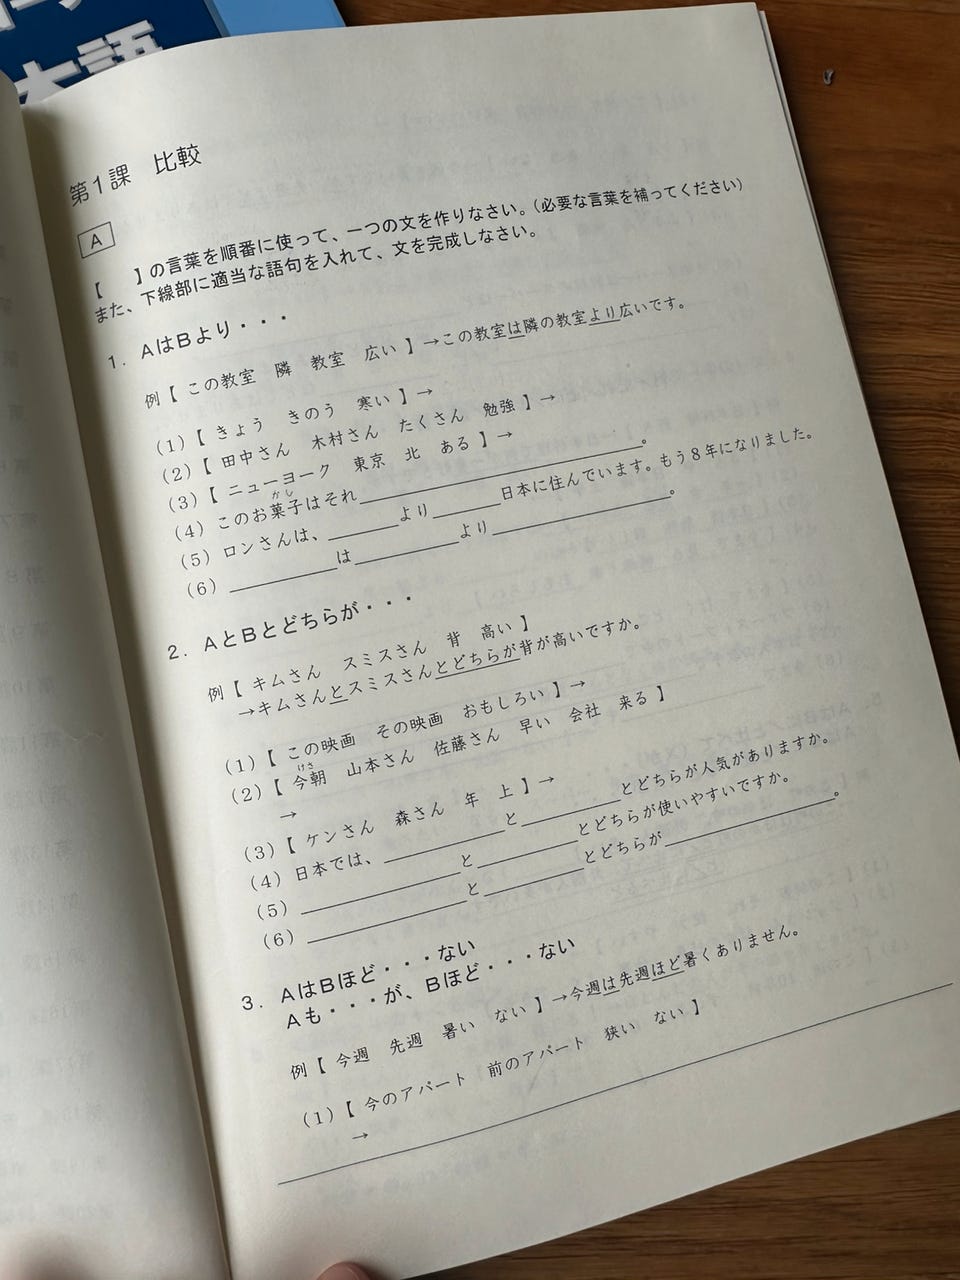 本語
第1課 比較
A
【 】の言葉を順番に使って、一つの文を作りなさい。(必要な言葉を補ってください)
また、下線部に適当な語句を入れて、文を完成しなさい。
1. AはBより・・・
例【 この教室 隣 教室 広い 】→この教室は隣の教室より広いです。
(1)【 きょう きのう 寒い 】→
(2)【 田中さん 木村さん たくさん 勉強 】→
(3)【 ニューヨーク 東京 北 ある 】→
かし
(4) このお菓子はそれ____________________。
(5) ロンさんは、______より______日本に住んでいます。もう8年になりました。
(6) _________は_________より______________。
2. AとBとどちらが・・・
例【 キムさん スミスさん 背 高い 】
→キムさんとスミスさんとどちらが背が高いですか。
(1)【 この映画 その映画 おもしろい 】→
けさ
(2)【 今朝 山本さん 佐藤さん 早い 会社 来る 】
→
(3)【 ケンさん 森さん 年 上 】→
(4) 日本では、_________と_________とどちらが人気がありますか。
(5) ____________と_________とどちらが使いやすいですか。
(6) ____________と_________とどちらが______________。
3. AはBほど・・・ない
Aも・・・が、Bほど・・・ない
例【 今週 先週 暑い ない 】→今週は先週ほど暑くありません。
(1)【 今のアパート 前のアパート 狭い ない 】
→